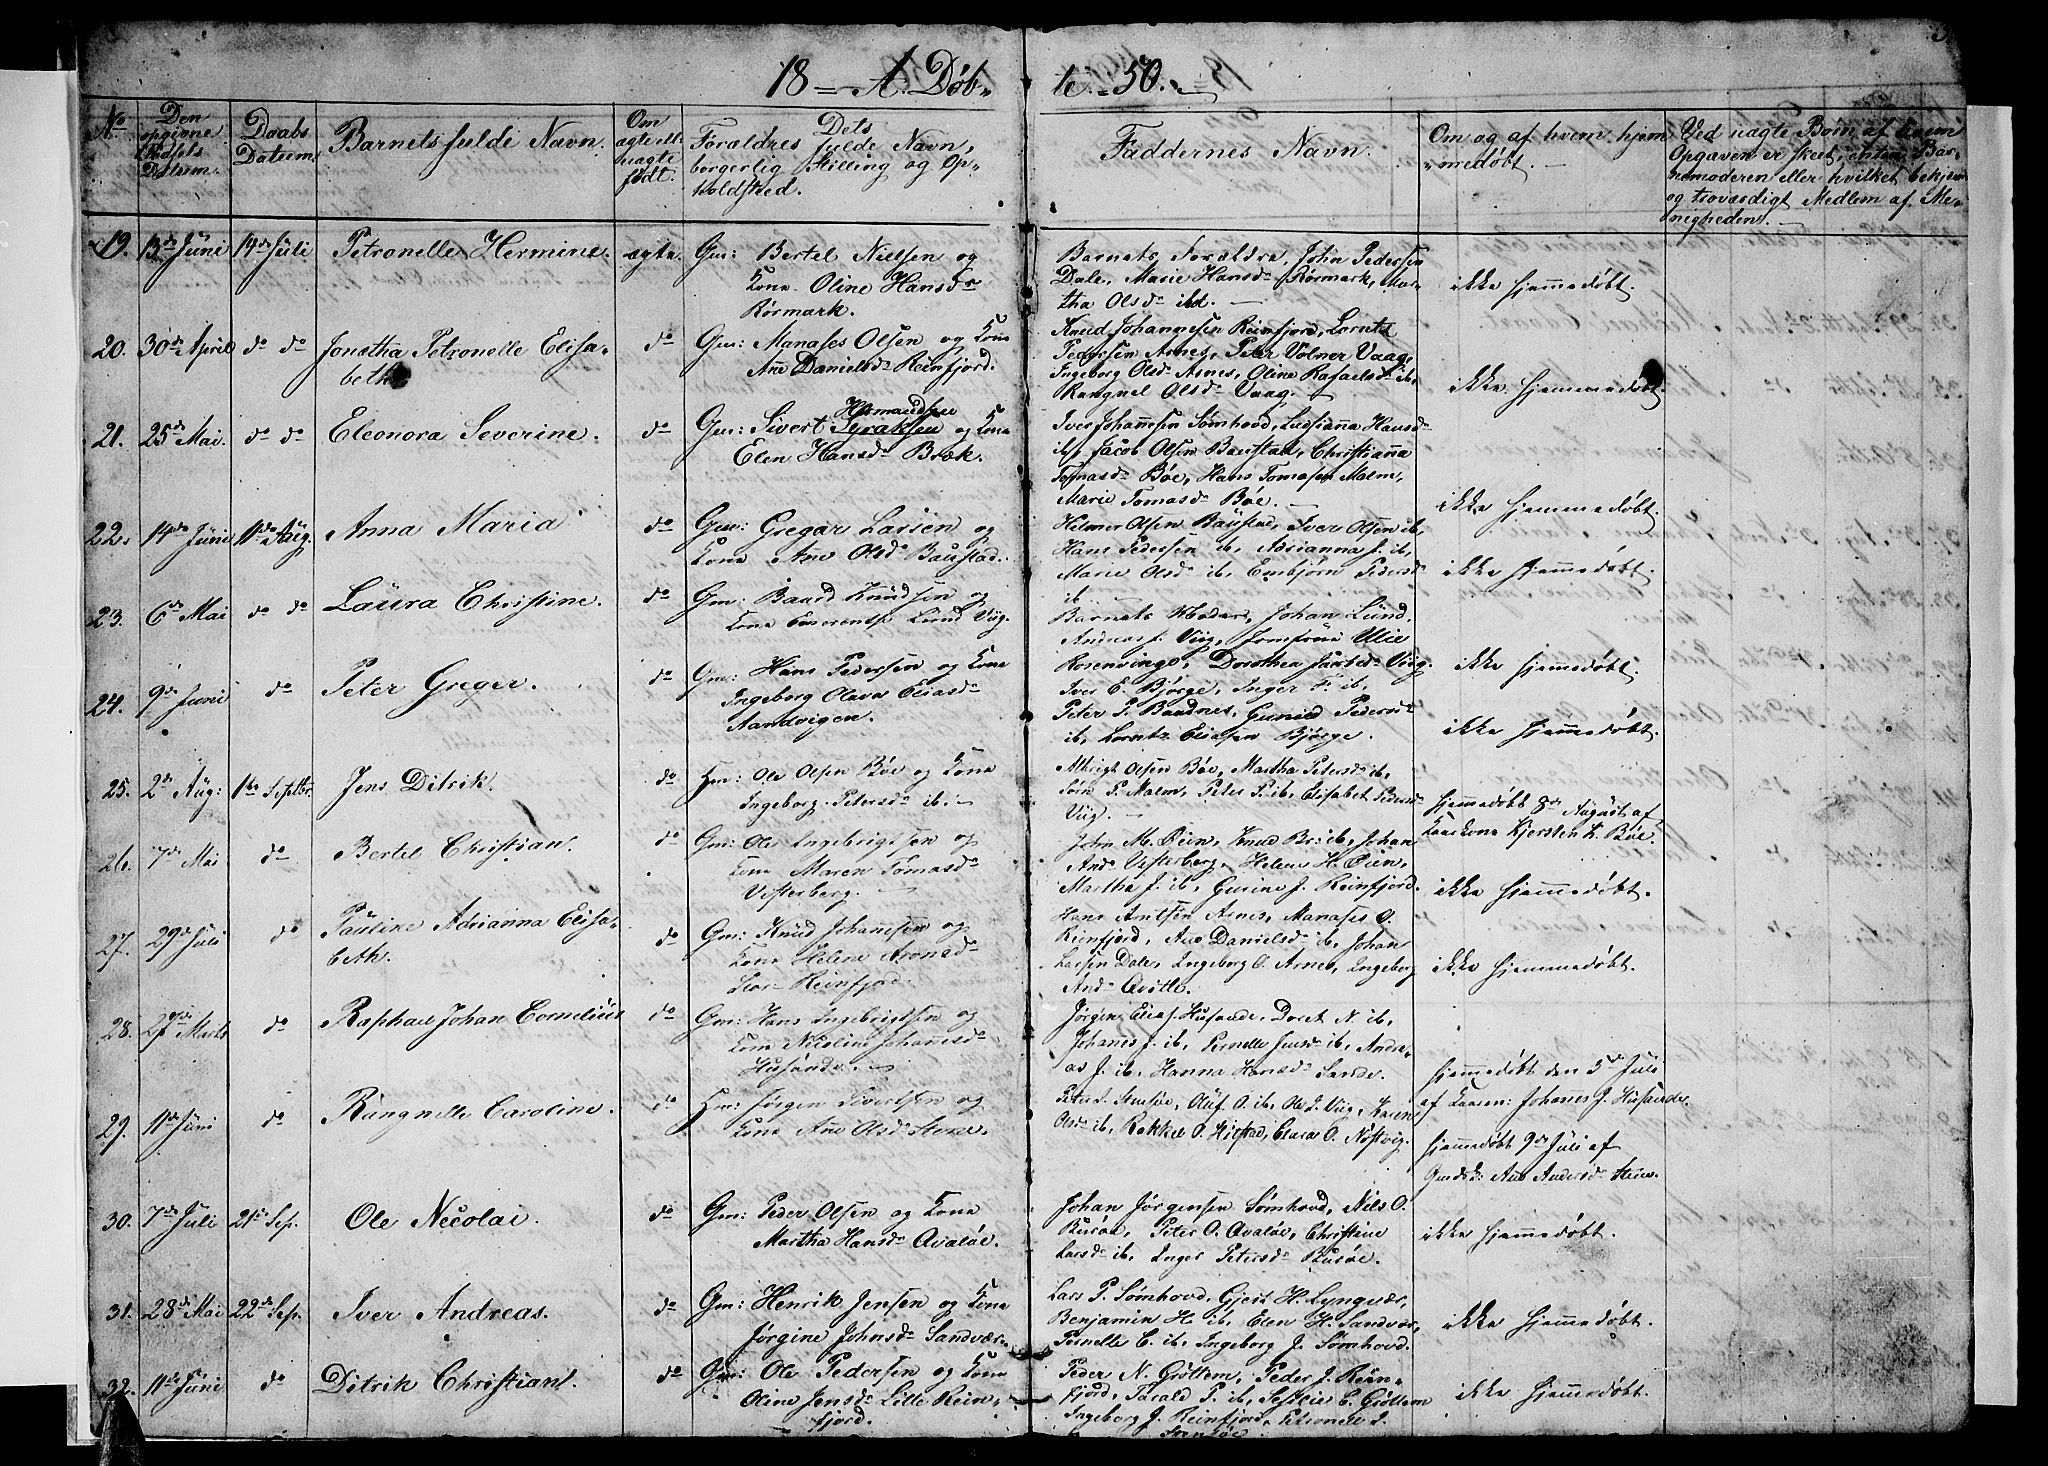 18 — A. Døb-
te. 50.
No
Den opgivne Fødsels Datum.
Daabs Datum
Barnets fulde Navn.
Om ægte ell. uægte født.
Dets Forældres fulde Navn, borgerlig Stilling og Opholdsted.
Faddernes Navn.
Om og af hvem hjemmedøbt.
Ved uægte Børn af hvem Opgaven er skeet, enten Barnemoderen eller hvilket bekjendt og troværdigt Medlem af Menigheden.
19. 13de Juni 14de Juli Petronelle Hermine. ægte. Gm: Bertel Nielsen og
Kone Oline Hansdr
Rørmark.
Barnets Forældre, John Pedersen
Dale, Marie Hansdr Rørmark, Mar-
tha Olsdr ibd.
ikke hjemmedøbt.
20. 30de April do do Jonetha Petronelle Elisa-
beth
do Gm: Manases Olsen og Kone
Ane Danielsdr Reinfjord.
Knud Johannesen Reinfjord, Lornts
Pedersen Arnes, Peter Volner Vaag,
Ingeborg Olsdr Arnes, Oline Rafaelsdr ib,
Rangnel Olsdr Vaag.
ikke hjemmedøbt.
21. 25de Mai. do do Eleonora Severine. do Gm: Sivert Hermandsen og Kone
Elen Hansdr Bræk.
Iver Johannsen Sømhovd, Hansdr
ib, Jacob Olsen Baustad, Christianna
Tomasdr Bøe, Hans Tomasen Malm,
Marie Tomasdr Bøe.
ikke hjemmedøbt.
22. 14de Juni 11de Aug. Anna Maria do Gm: Gregar Larsen og
Kone Ane Olsdr Baustad.
Helmer Olsen Baustad, Iver Olsen ib,
Hans Pedersen ib, Adrianna J. ib,
Marie Olsdr ib, Embjørn Pedersdr
ib.
ikke hjemmedøbt.
23. 6de Mai do do Laura Christine. do Gm: Baard Knudsen og
Kone Emerentse Lund Viig.
Barnets Moder, Johan Lund,
Andreas J. Viig, Jomfrue Ulie
Rosenvinge, Dorothea Viig.
ikke hjemedøbt.
24. 9de Juni do Peter Greger. do Gm: Hans Pedersen og Kone
Ingeborg Olava Eliasdr
Aandvigen.
Iver E. Bjørge, Inger F. ib,
Peter P. Baadnes, Gunild Pedersdr
ib, Lorntz Eliasen Bjørge.
ikke hjemmedøbt.
25. 2de Aug: 1te Septbr. Jens Ditrik. do Hm: Ole Olsen Bøe og Kone
Ingeborg Petersdr ib.
Albrigt Olsen Bøe, Martha Petersdr ib,
Jørn P. Malm, Peter P. ib, Elisabet Pedersdr
Viig.
hjemmedøbt 8de August af
Kone Kjersten L. Bøe.
26. 7de Mai do Bertel Christian. do Gm: Ole Ingebrigtsen og
Kone Maren Tomasdr
Vesterberg.
John M. Øien, Knud Br: ib, Johan
Andr Vesterberg, Helene H. Øien,
Martha J. ib, Gurine J. Reinfjord.
ikke hjemmedøbt.
27. 29de Juli do Pauline Adrianna Elisa-
beth.
do Gm: Knud Johannesen og
Kone Helene Aronsdr
Stor-Reinfjord.
Hans Arntsen Arnes, Manases O.
Reinfjord, Ane Danielsdr ib, Johan
Larsen Dale, Ingeborg O. Arnes, Ingeborg
Andr
ikke hjemmedøbt.
28. Marts do Raphael Johan Cornelius do Gm: Hans Ingebrigtsen og
Kone Nicoline Johannesdr
Husande.
Jørgen Elias. Husande, Doret N. ib,
Johannes J. ib, Pernelle Jensdr ib, Andre-
as J. ib, Hanna Hansdr Sande.
hjemmedøbt den 5de Juli
af Johannes J. Husande.
29. 11de Juni do Rangnelle Caroline. do Hm: Jørgen Sivertsen og
Kone Ane Olsdr Stene.
Oluf O. ib, Ole J. Viig, Karen
Olsdr ib, Rakkel O. Hilstad, Clara O. Nøstvig.
hjemmedøbt 9de Juli af
Ane Andersdr
30. 7de Juli 21de Sep. Ole Necolai. do Gm: Peder Olsen og Kone
Martha Hansdr Avaløe.
Johan Jørgensen Sømhovd, Niels O.
Burøe, Peter O. Avaløe, Christine
Larsdr ib, Inger Petersdr Burøe.
ikke hjemmedøbt.
31. 28de Mai 22de Sep. Iver Andreas. do Gm: Henrik Jensen og Kone
Jørgine Johnsdr Sandvær.
Lars P. Sømhovd, Gjert H. Lyngvær,
Benjamin H. ib, Elen H. Sandvær,
Pernelle E. ib, Ingeborg J. Sømhovd.
ikke hjemmedøbt.
32. 11de Juni do Ditrik Christian. do Gm: Ole Pedersen og Kone
Oline Jensdr Lille Rein-
fjord.
Peder N. Grøttem, Peder J. Rein-
fjord, Tarald P. ib, E. Grøttem
Ingeborg J. Reinfjord, Petronele J.
ikke hjemmedøbt.